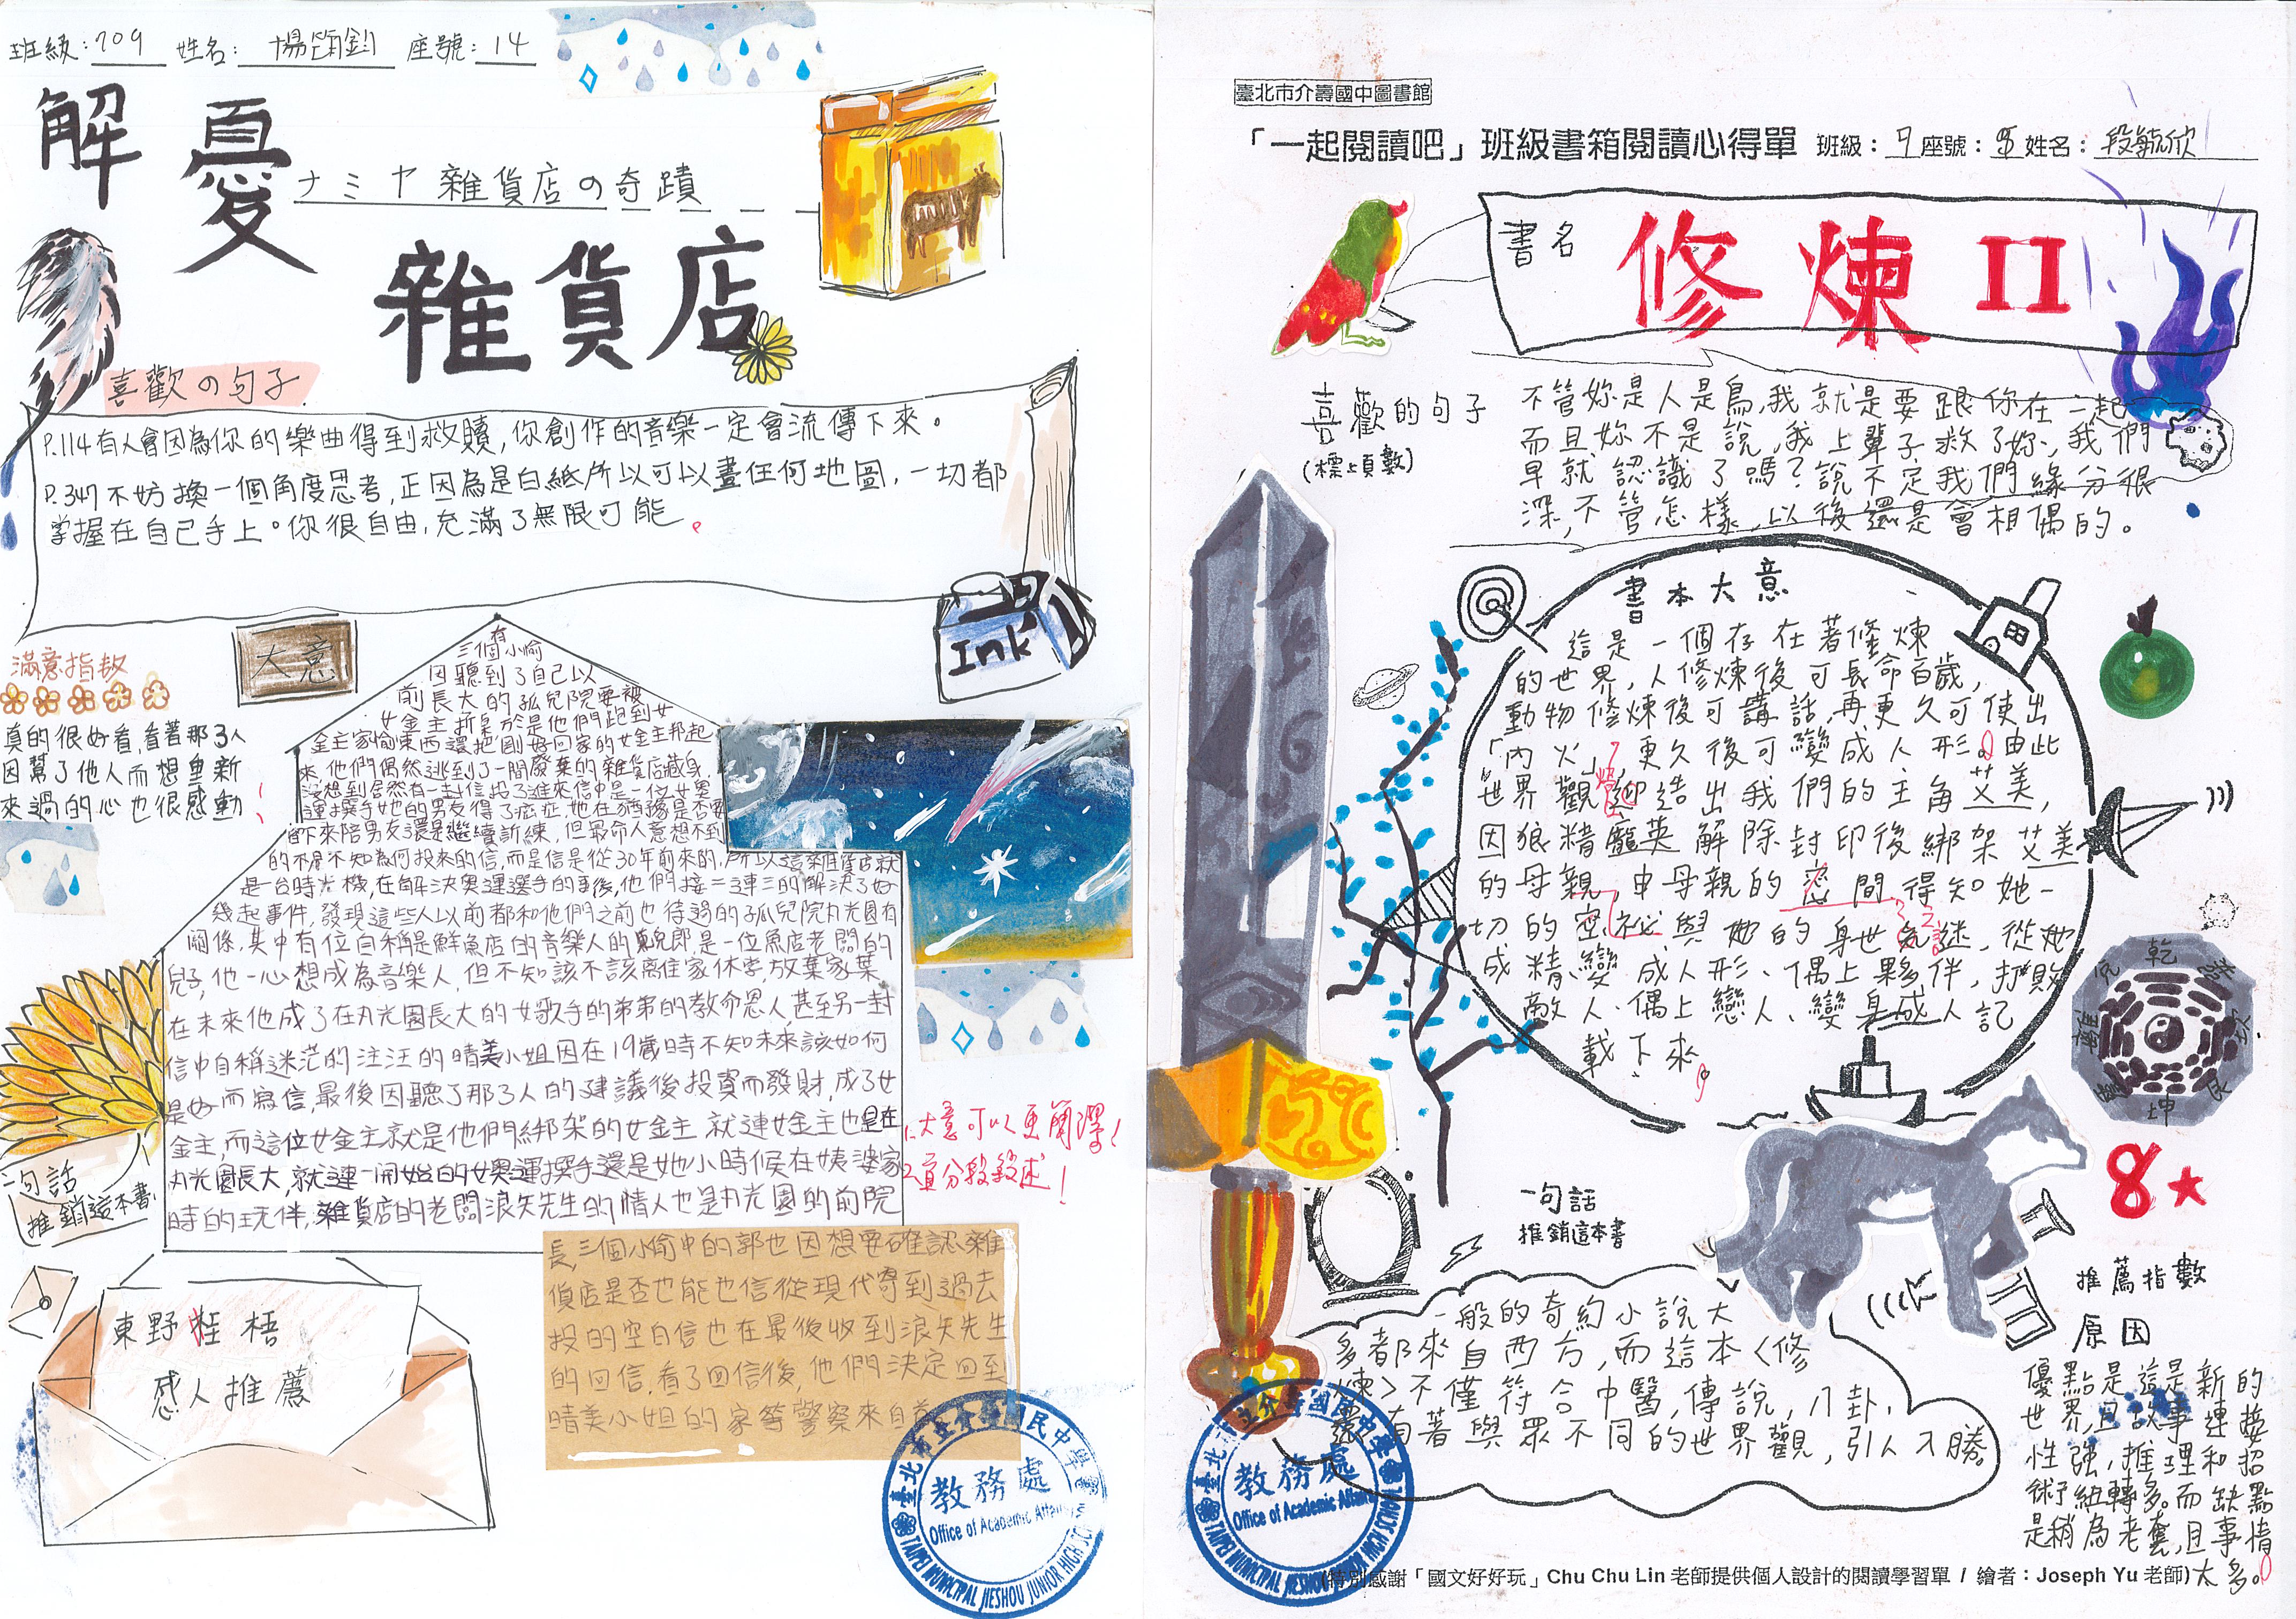 班級:709 姓名: 楊 座號: 14
解憂
ナミヤ雜貨店の奇蹟
雜貨店
喜歡の句子
P.114有人會因為你的樂曲得到救贖,你創作的音樂一定會流傳下來。
P.347不妨換一個角度思考,正因為是白紙所以可以畫任何地圖,一切都
掌握在自己手上。你很自由,充滿了無限可能
Ink
大意
滿意指教
真的很好看,看著那3人
因幫了他人而想重新
來過的心也很感動
有
三個小偷
因聽到了自己以
前長大的孤兒院要被
女金主拆
於是他們跑到女
金主家偷東西還把剛好回家的女金主邦起
來,他們偶然逃到了一間廢棄的雜貨店藏身
沒想到居然有一封信投了進來信中是一位女奧
運撰手她的男友得了癌症,她在猶豫是否要
留下來陪男友還是繼續訓練,但最命人意想不到
的不是不知為何投來的信,而是信是從30年前來的,所以這雜貨店就
是一台時光機,在解決奧運選手的事後,他們接二連三的解決了好
幾起事件,發現這些人以前都和他們之前也待過的孤兒院丸光園有
關係,其中有位自稱是鮮魚店的音樂人的克郎,是一位魚店老闆的
兒子,他一心想成為音樂人,但不知該不該離家休學,放棄家業
在未來他成了在丸光園長大的女歌手的弟弟的救命恩人甚至另一封
信中自稱迷茫的汪汪的晴美小姐因在19歲時不知未來該如何
是好而寫信,最後因聽了那3人的建議後投資而發財,成了女
金主,而這位女金主就是他們綁架的女金主 就連女金主也是在
丸光園長大,就連一開始的女奧運撰手還是她小時候在姨婆家
時的玩伴,雜貨店的老闆浪矢先生的情人也是丸光園的前院
長,三個小偷中的郭也因想要確認雜
貨店是否也能也信從現代寄到過去
投的空白信也在最後收到浪矢先生
的回信,看了回信後,他們決定回到
晴美小姐的家等警察來自
1.大意可以更簡潔!
2.宜分段敘述!
一句話
推銷這本書
東野桂梧
感人推薦
臺北市立介壽國民中學
教務處
Office of Academic Affairs
TAIPEI MUNICIPAL JIESHOU JUNIOR HIGH SCHOOL
臺北市介壽國中圖書館
「一起閱讀吧」班級書箱閱讀心得單 班級:9 座號:5 姓名:段毓欣
書名
修煉II
喜歡的句子
(標上頁數)
不管妳是人是鳥,我就是要跟你在一起
而且妳不是說,我上輩子救了妳,我們
早就認識了嗎?說不定我們緣分很
深,不管怎樣,以後還是會相偶的。
書本大意
這是一個存在著修煉
的世界,人修煉後可長命百歲,
動物修煉後可講話,再更久可使出
「內火」,更久後可變成人形。由此
世界觀 造出我們的主角艾美,
因狼精龐英解除封印後綁架艾美
的母親,由母親的 間得知她一
切的密祕與她的身世 迷,從她
成精變成人形、偶上夥伴,打敗
敵人、偶上戀人、變身成人記
載下來。
乾
坎
艮
坤
兌
8★
推薦指數
原因
優點是這是新的
世界,且故事連接
性強,推理和招
術紐轉多。而缺點
是稍為老套,且事情
太多。
一句話
推銷這本書
一般的奇幻小說大
多都來自西方,而這本<修
煉>不僅符合中醫,傳說,八卦,
還有著與眾不同的世界觀,引人入勝。
臺北市立介壽國民中學
教務處
Office of Academic Affairs
TAIPEI MUNICIPAL JIESHOU JUNIOR HIGH SCHOOL
(特別感謝「國文好好玩」Chu Chu Lin 老師提供個人設計的閱讀學習單 / 繪者:Joseph Yu 老師)